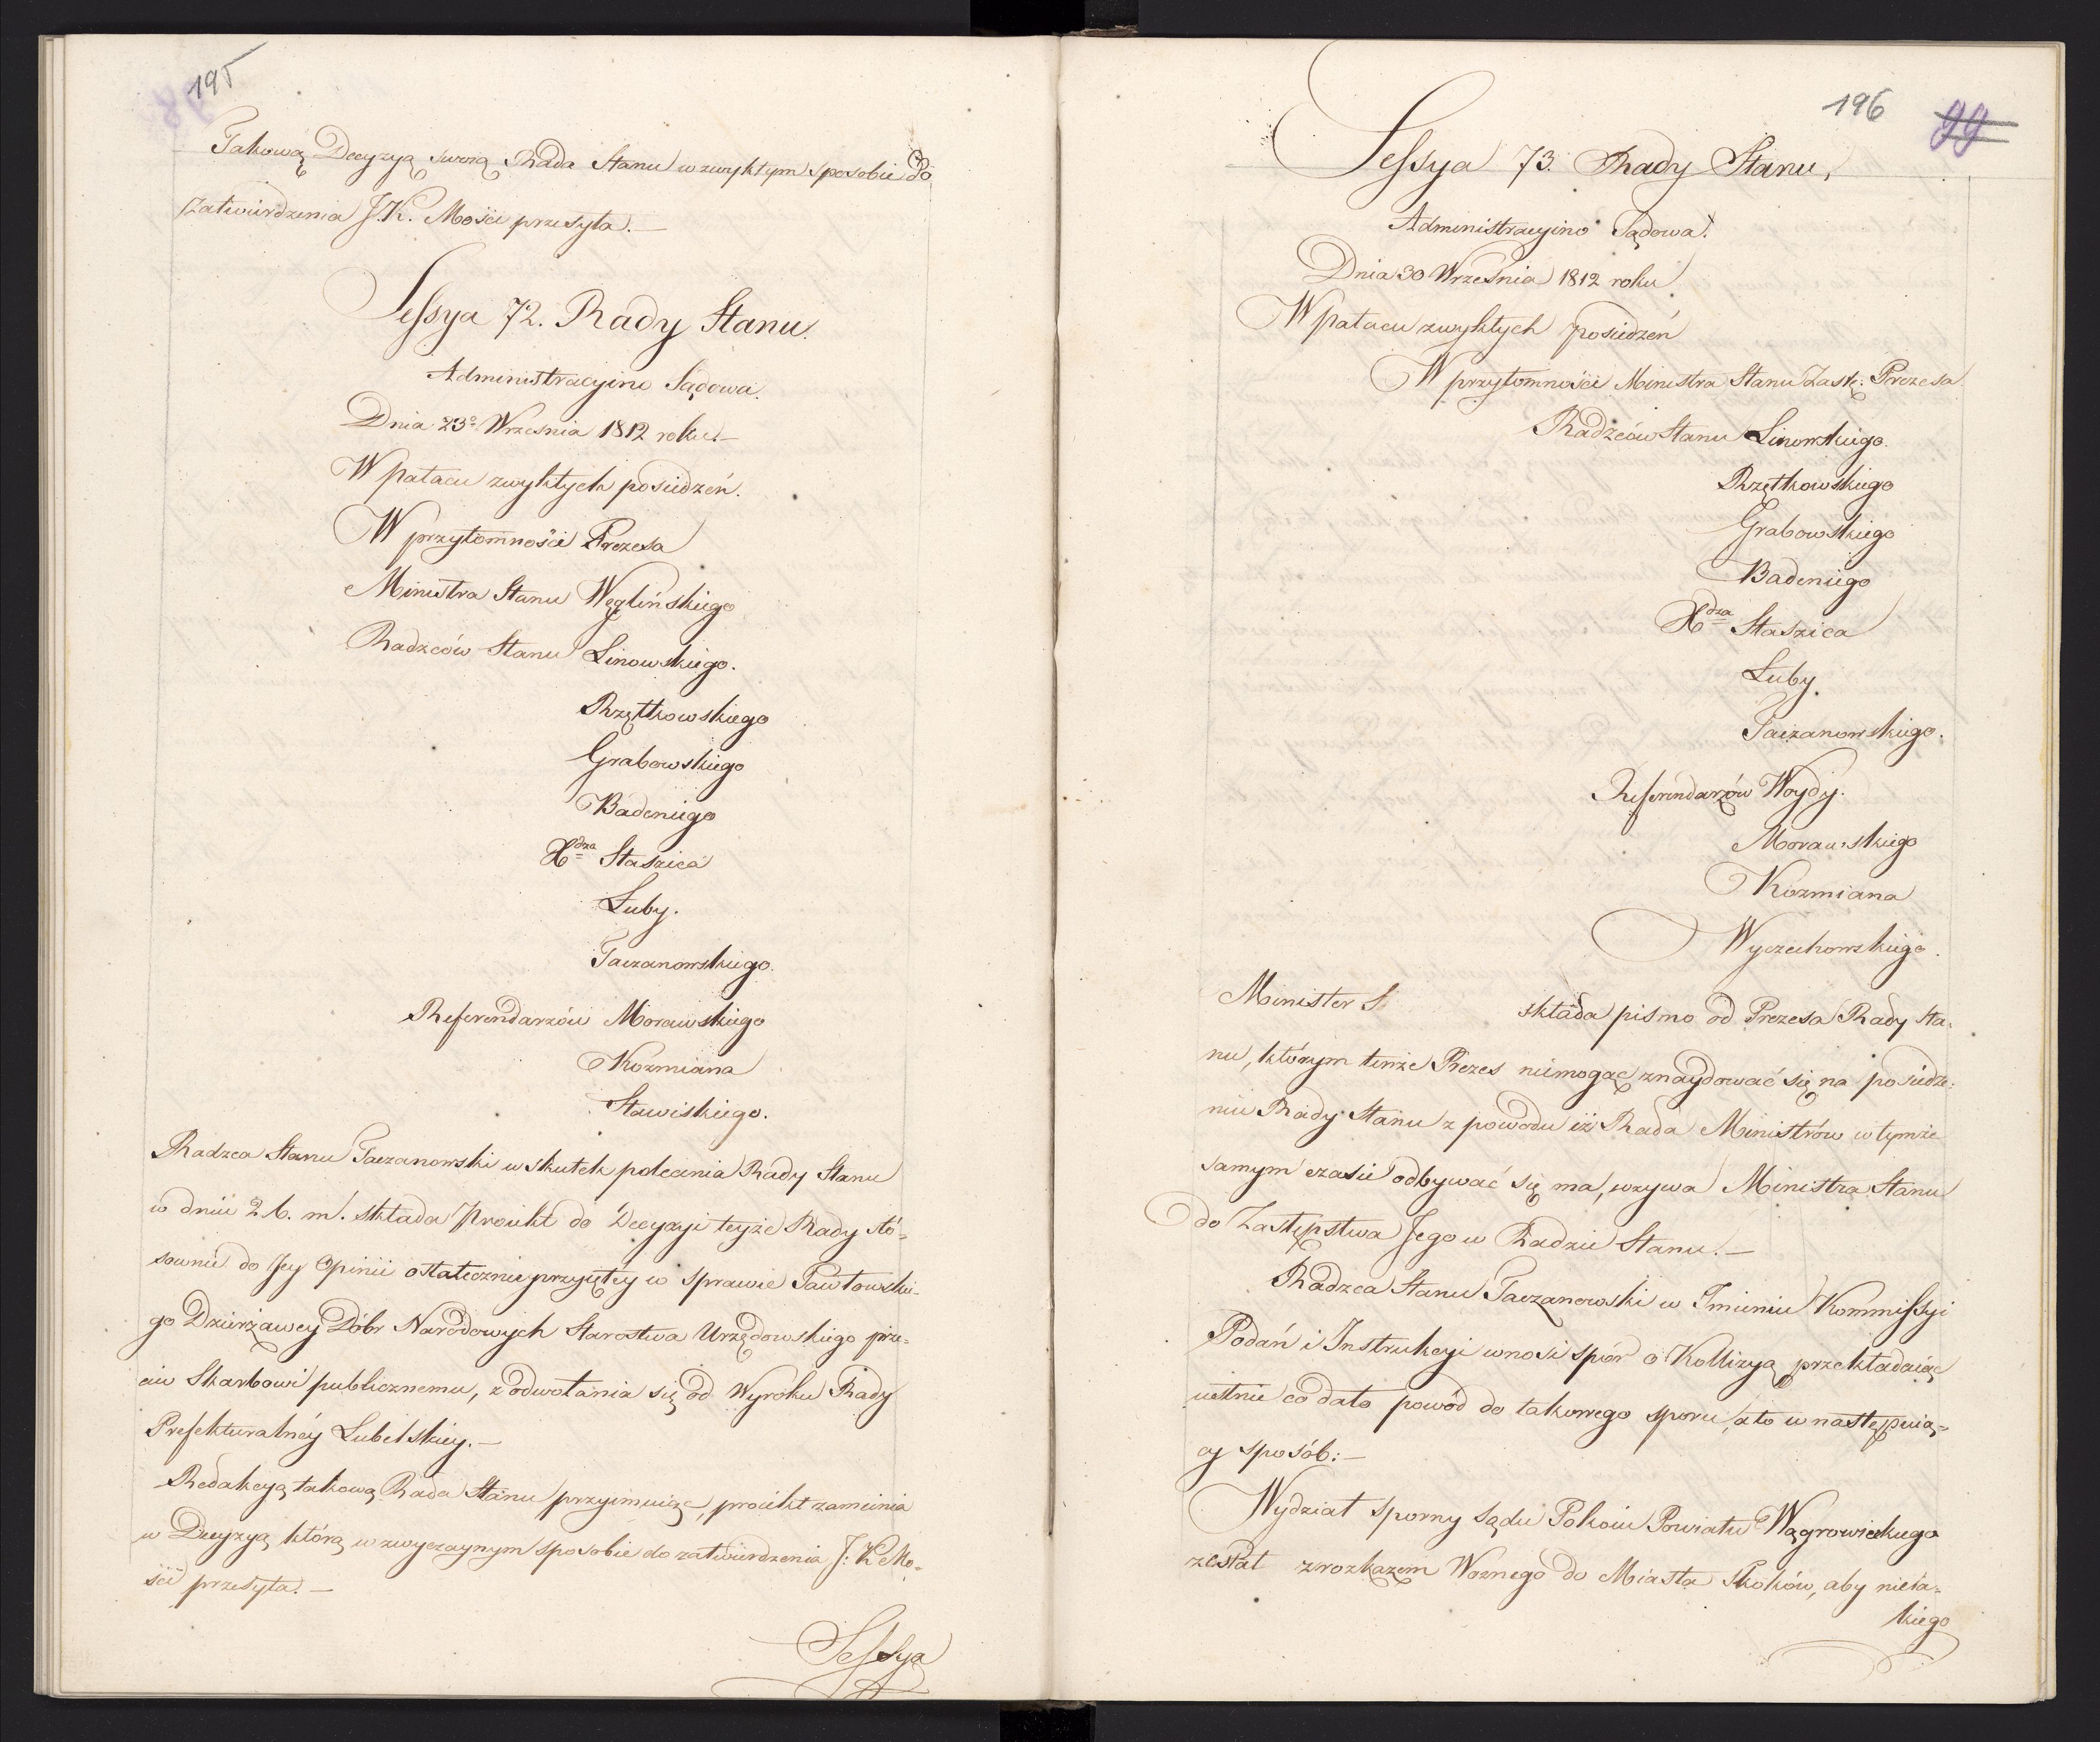 195
98
Takową Decyzyą swoią Rada Stanu w zwykłym sposobie do
zatwierdzenia J.K. Mości przesyła.—
Sessya 72. Rady Stanu.
Administracyino Sądowa.
Dnia 23° Września 1812 roku.—
W pałacu zwykłych posiedzeń.
W przytomności Prezesa
Ministra Stanu Węglińskiego
Radzców Stanu Linowskiego.
Rzętkowskiego
Grabowskiego
Badeniego
Xdza Staszica
Łuby.
Taczanowskiego.
Referendarzów Morawskiego
Koźmiana
Stawiskiego.
Radzca Stanu Taczanowski w skutek polecenia Rady Stanu
w dniu 2 b. m. składa Proiekt do Decyzyi teyże Rady stó=
sownie do Jey Opinii ostatecznie przyiętey w sprawie Pawłowskie-
go Dzierżawcy Dóbr Narodowych Starostwa Urzędowskiego prze=
ciw Skarbowi publicznemu, z odwołania się od Wyroku Rady
Prefekturalnéy Lubelskiey.—
Redakcyą takową Rada Stanu przyimuiąc, proiekt zamienia
w Decyzyą którą w zwyczaynym sposobie do zatwierdzenia J: K Mo=
ści przesyła.—
Sessya
196
99
Sessya 73. Rady Stanu,
Administracyino Sądowa.
Dnia 30 Września 1812 roku
W pałacu zwykłych posiedzeń
W przytomności Ministra Stanu Zastę: Prezesa
Radzców Stanu Linowskiego.
Rzętkowskiego
Grabowskiego
Badeniego
Xdza Staszica
Łuby.
Taczanowskiego.
Referendarzów Woydy.
Morawskiego
Koźmiana
Wyczechowskiego.
Minister S składa pismo od Prezesa Rady Sta=
nu, którym tenże Prezes niemogąc znaydować się na posiedze=
niu Rady Stanu z powodu iż Rada Ministrów w tymże
samym czasie odbywać się ma, wzywa Ministra Stanu
do Zastępstwa Jego w Radzie Stanu.—
Radzca Stanu Taczanowski w Imieniu Kommissyi
Podań i Instrukcyi wnosi spór o Kollizyą przekładaiąc
ustnie co dało powód do takowego sporu, a to w następuią=
cy sposób:—
Wydział sporny Sądu Pokoiu Powiatu Wągrowieckiego
zesłał z rozkazem Woźnego do Miasta Skoków, aby nieia=
kiego